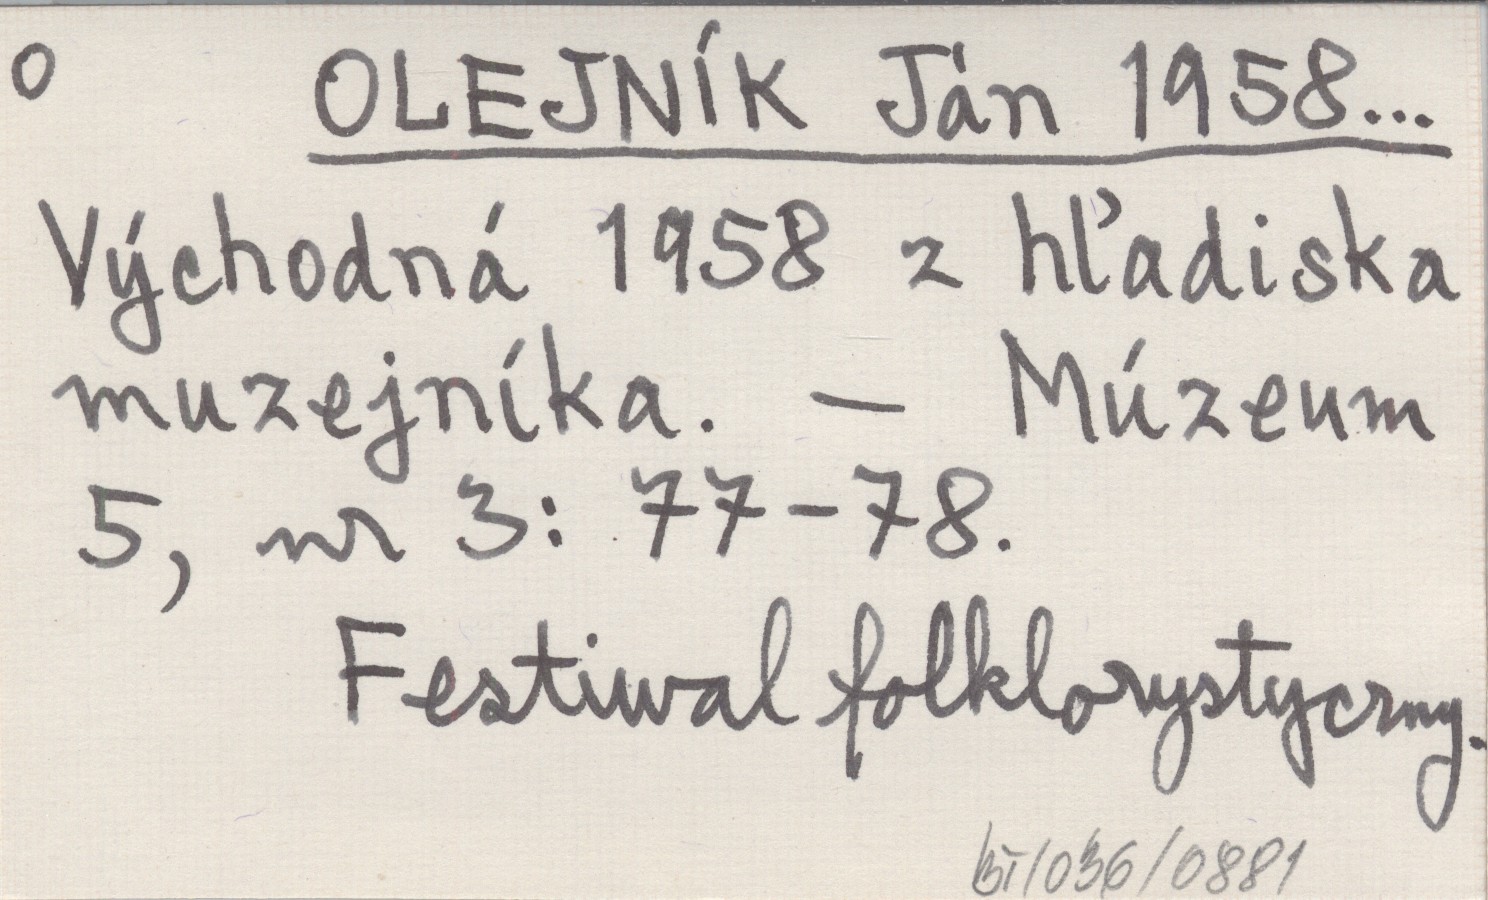 O OLEJNÍK Ján 1958...
Východná 1958 z hľadiska
muzejníka. — Múzeum
5, nr 3: 77-78.
Festiwal folklorystyczny.
BT/036/0881